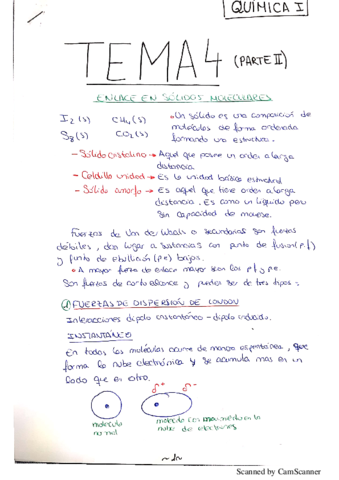 QUÍMICA I
TEMA 4 (PARTE II)
ENLACE EN SÓLIDOS MOLECULARES
I₂(s) CH₄(s)
S₈(s) CO₂(s)
• Un sólido es una composición de
moléculas de forma ordenada
formando una estructura.
- Sólido cristalino → Aquel que posee un orden a larga
distancia.
- Celdilla unidad → Es la unidad básica estructural
- Sólido amorfo → Es aquel que tiene orden a larga
distancia. Es como un líquido pero
sin capacidad de moverse.
Fuerzas de Van der Waals o secundarias son fuerzas
débiles, dan lugar a sustancias con punto de fusión (p.f)
y punto de ebullición (p.e) bajos.
• A mayor fuerza de enlace mayor son los pf y pe.
Son fuerzas de corto alcance y pueden ser de tres tipos:
FUERZAS DE DISPERSIÓN DE LONDON
Interacciones dipolo instantáneo - dipolo inducido.
INSTANTÁNEO
En todas las moléculas ocurre de manera espontánea, que
forma la nube electrónica y se acumula mas en un
lado que en otro.
δ⁺ δ⁻
molécula
normal
molécula con movimiento en la
nube de electrones
~1~
Scanned by CamScanner